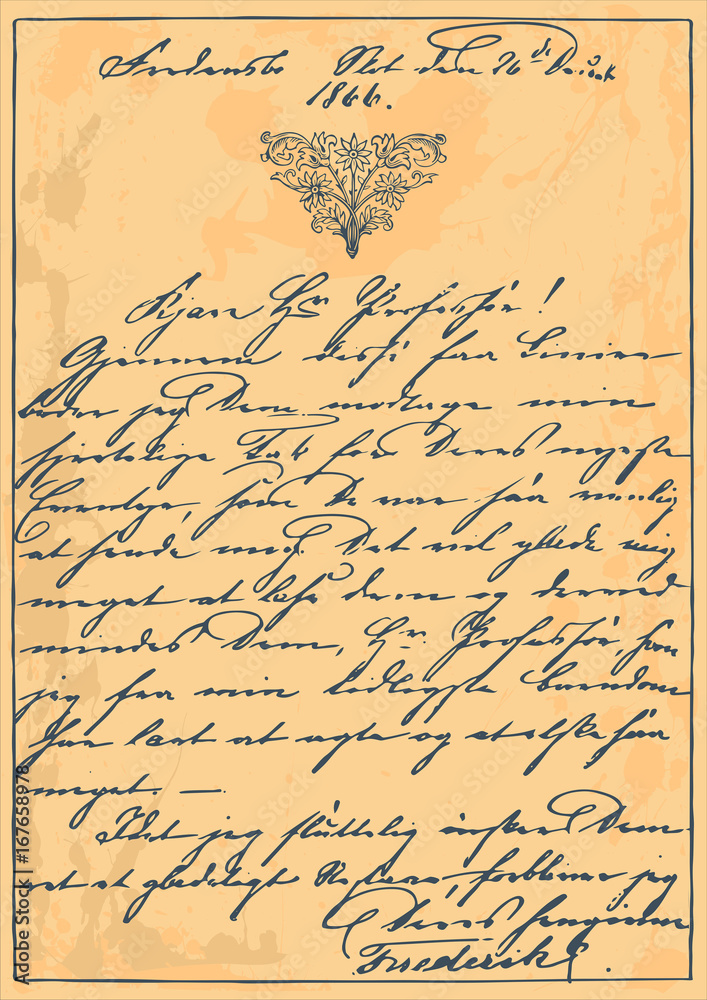 Fredensbo Slot den 26 de
1866.
Kjære Hr Professor!
Gjennem disse faa Linier
beder jeg Dem modtage min
hjertelige Tak for Deres nyeste
Eventyr, som De var saa venlig
at sende mig. Det vil glæde mig
meget at læse dem og derved
mindes Dem, Hr. Professor, som
jeg fra min tidligste Barndom
har lært at agte og at elske saa
meget. —
Idet jeg sluttelig ønsker Dem
et glædeligt Nytaar, forbliver jeg
Deres hengivne
Frederik.
Adobe Stock | #167658978